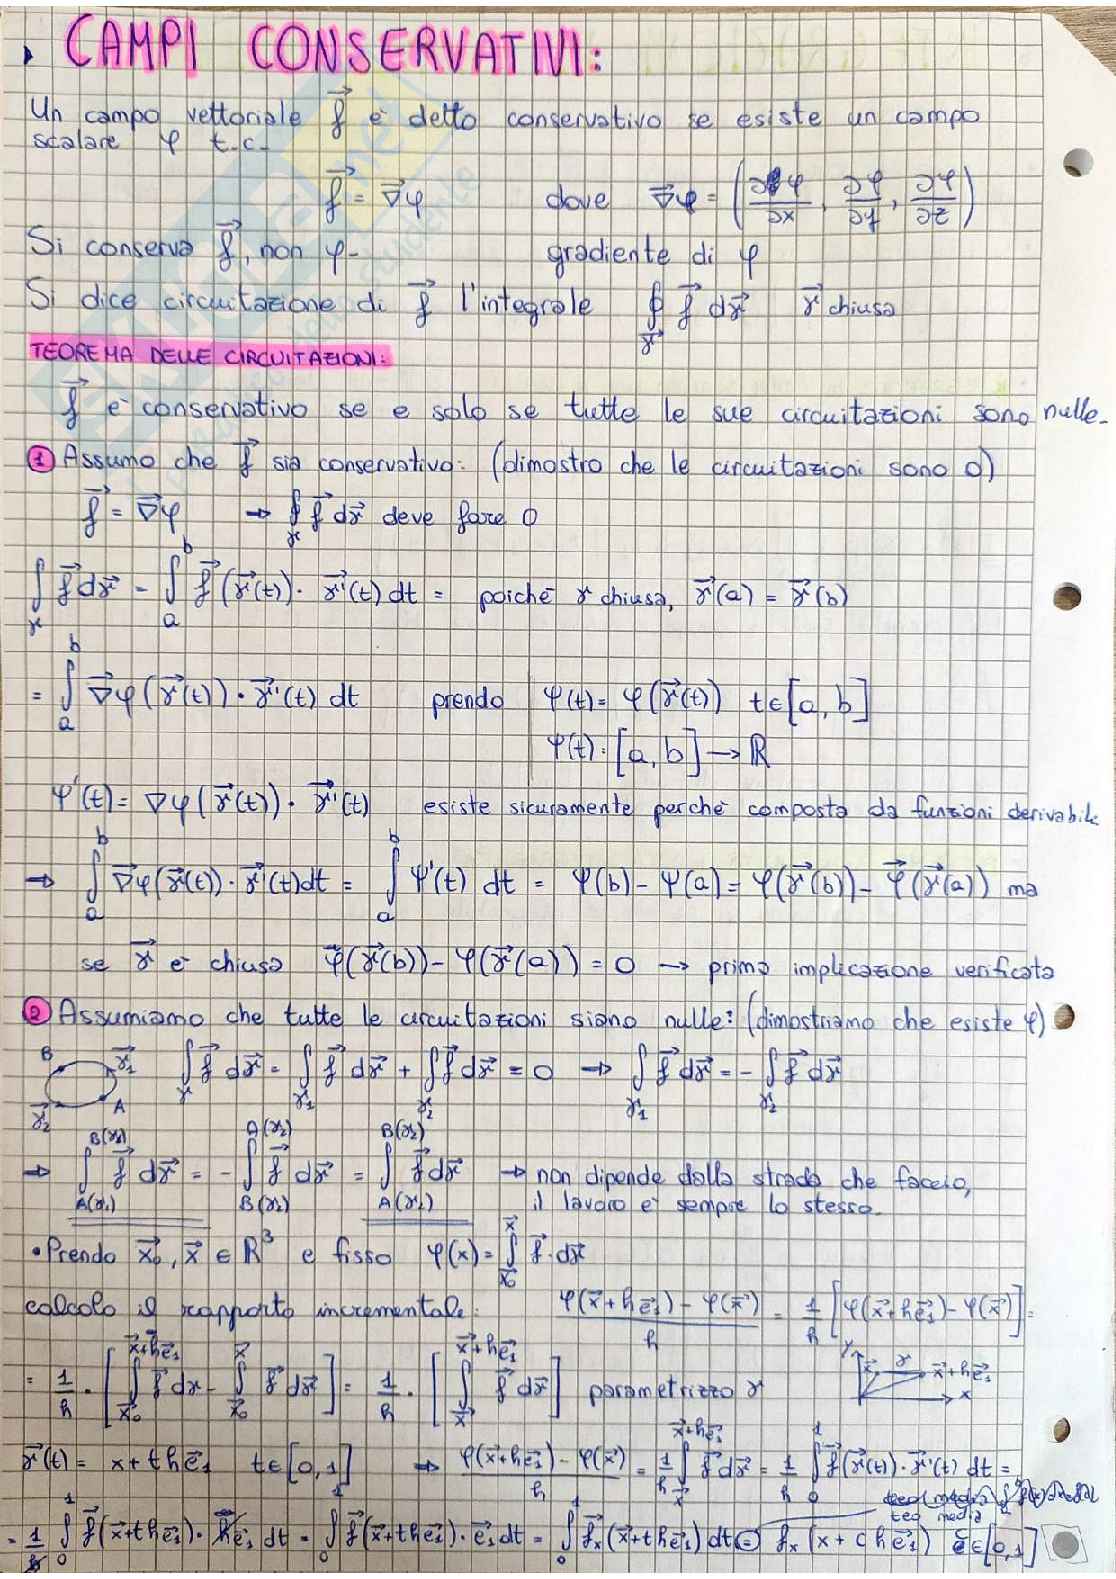 • CAMPI CONSERVATIVI:
Un campo vettoriale f⃗ è detto conservativo se esiste un campo
scalare φ t.c.
f⃗ = ∇⃗φ dove ∇⃗φ = (∂φ/∂x, ∂φ/∂y, ∂φ/∂z)
Si conserva f⃗, non φ. gradiente di φ
Si dice circuitazione di f⃗ l'integrale ∮_γ⃗ f⃗ dγ⃗ γ⃗ chiusa
TEOREMA DELLE CIRCUITAZIONI:
f⃗ è conservativo se e solo se tutte le sue circuitazioni sono nulle.
① Assumo che f⃗ sia conservativo: (dimostro che le circuitazioni sono 0)
f⃗ = ∇⃗φ → ∮_γ f⃗ dγ⃗ deve fare 0
∫_γ f⃗ dγ⃗ = ∫_a^b f⃗(γ⃗(t)) · γ⃗'(t) dt = poiché γ chiusa, γ⃗(a) = γ⃗(b)
= ∫_a^b ∇⃗φ(γ⃗(t)) · γ⃗'(t) dt prendo ψ(t) = φ(γ⃗(t)) t∈[a, b]
ψ(t): [a, b] → ℝ
ψ'(t) = ∇φ(γ⃗(t)) · γ⃗'(t) esiste sicuramente perché composta da funzioni derivabile
→ ∫_a^b ∇⃗φ(γ⃗(t)) · γ⃗'(t) dt = ∫_a^b ψ'(t) dt = ψ(b) - ψ(a) = φ(γ⃗(b)) - φ⃗(γ⃗(a)) ma
se γ⃗ è chiusa φ⃗(γ⃗(b)) - φ(γ⃗(a)) = 0 → prima implicazione verificata
② Assumiamo che tutte le circuitazioni siano nulle: (dimostriamo che esiste φ)
B γ⃗₁ A γ⃗₂ ∫_γ f⃗ dγ⃗ = ∫_γ₁ f⃗ dγ⃗ + ∫_γ₂ f⃗ dγ⃗ = 0 → ∫_γ₁ f⃗ dγ⃗ = - ∫_γ₂ f⃗ dγ⃗
→ ∫_A(γ₁)^B(γ₁) f⃗ dγ⃗ = - ∫_B(γ₂)^A(γ₂) f⃗ dγ⃗ = ∫_A(γ₂)^B(γ₂) f⃗ dγ⃗ → non dipende dalla strada che faccio,
il lavoro è sempre lo stesso.
• Prendo x⃗₀, x⃗ ∈ ℝ³ e fisso φ(x) = ∫_x⃗₀^x⃗ f⃗ · dγ⃗
calcolo il rapporto incrementale: (φ(x⃗+he⃗₁) - φ(x⃗))/h = 1/h [φ(x⃗+he⃗₁) - φ(x⃗)] =
= 1/h · [∫_x⃗₀^x⃗+he⃗₁ f⃗ dγ - ∫_x⃗₀^x⃗ f⃗ dγ⃗] = 1/h · [∫_x⃗^x⃗+he⃗₁ f⃗ dγ⃗] parametrizzo γ y x⃗ γ x⃗+he⃗₁ x
γ⃗(t) = x + the⃗₁ t∈[0,1] → (φ(x⃗+he⃗₁) - φ(x⃗))/h = 1/h ∫_x⃗^x⃗+he⃗₁ f⃗ dγ⃗ = 1/h ∫_0^1 f⃗(γ⃗(t)) · γ⃗'(t) dt =
teo media
= 1/h ∫_0^1 f⃗(x⃗+the⃗₁) · he⃗₁ dt = ∫_0^1 f⃗(x⃗+the⃗₁) · e⃗₁ dt = ∫_0^1 f⃗ₓ(x⃗+the⃗₁) dt = fₓ(x+che⃗₁) c∈[0,1]